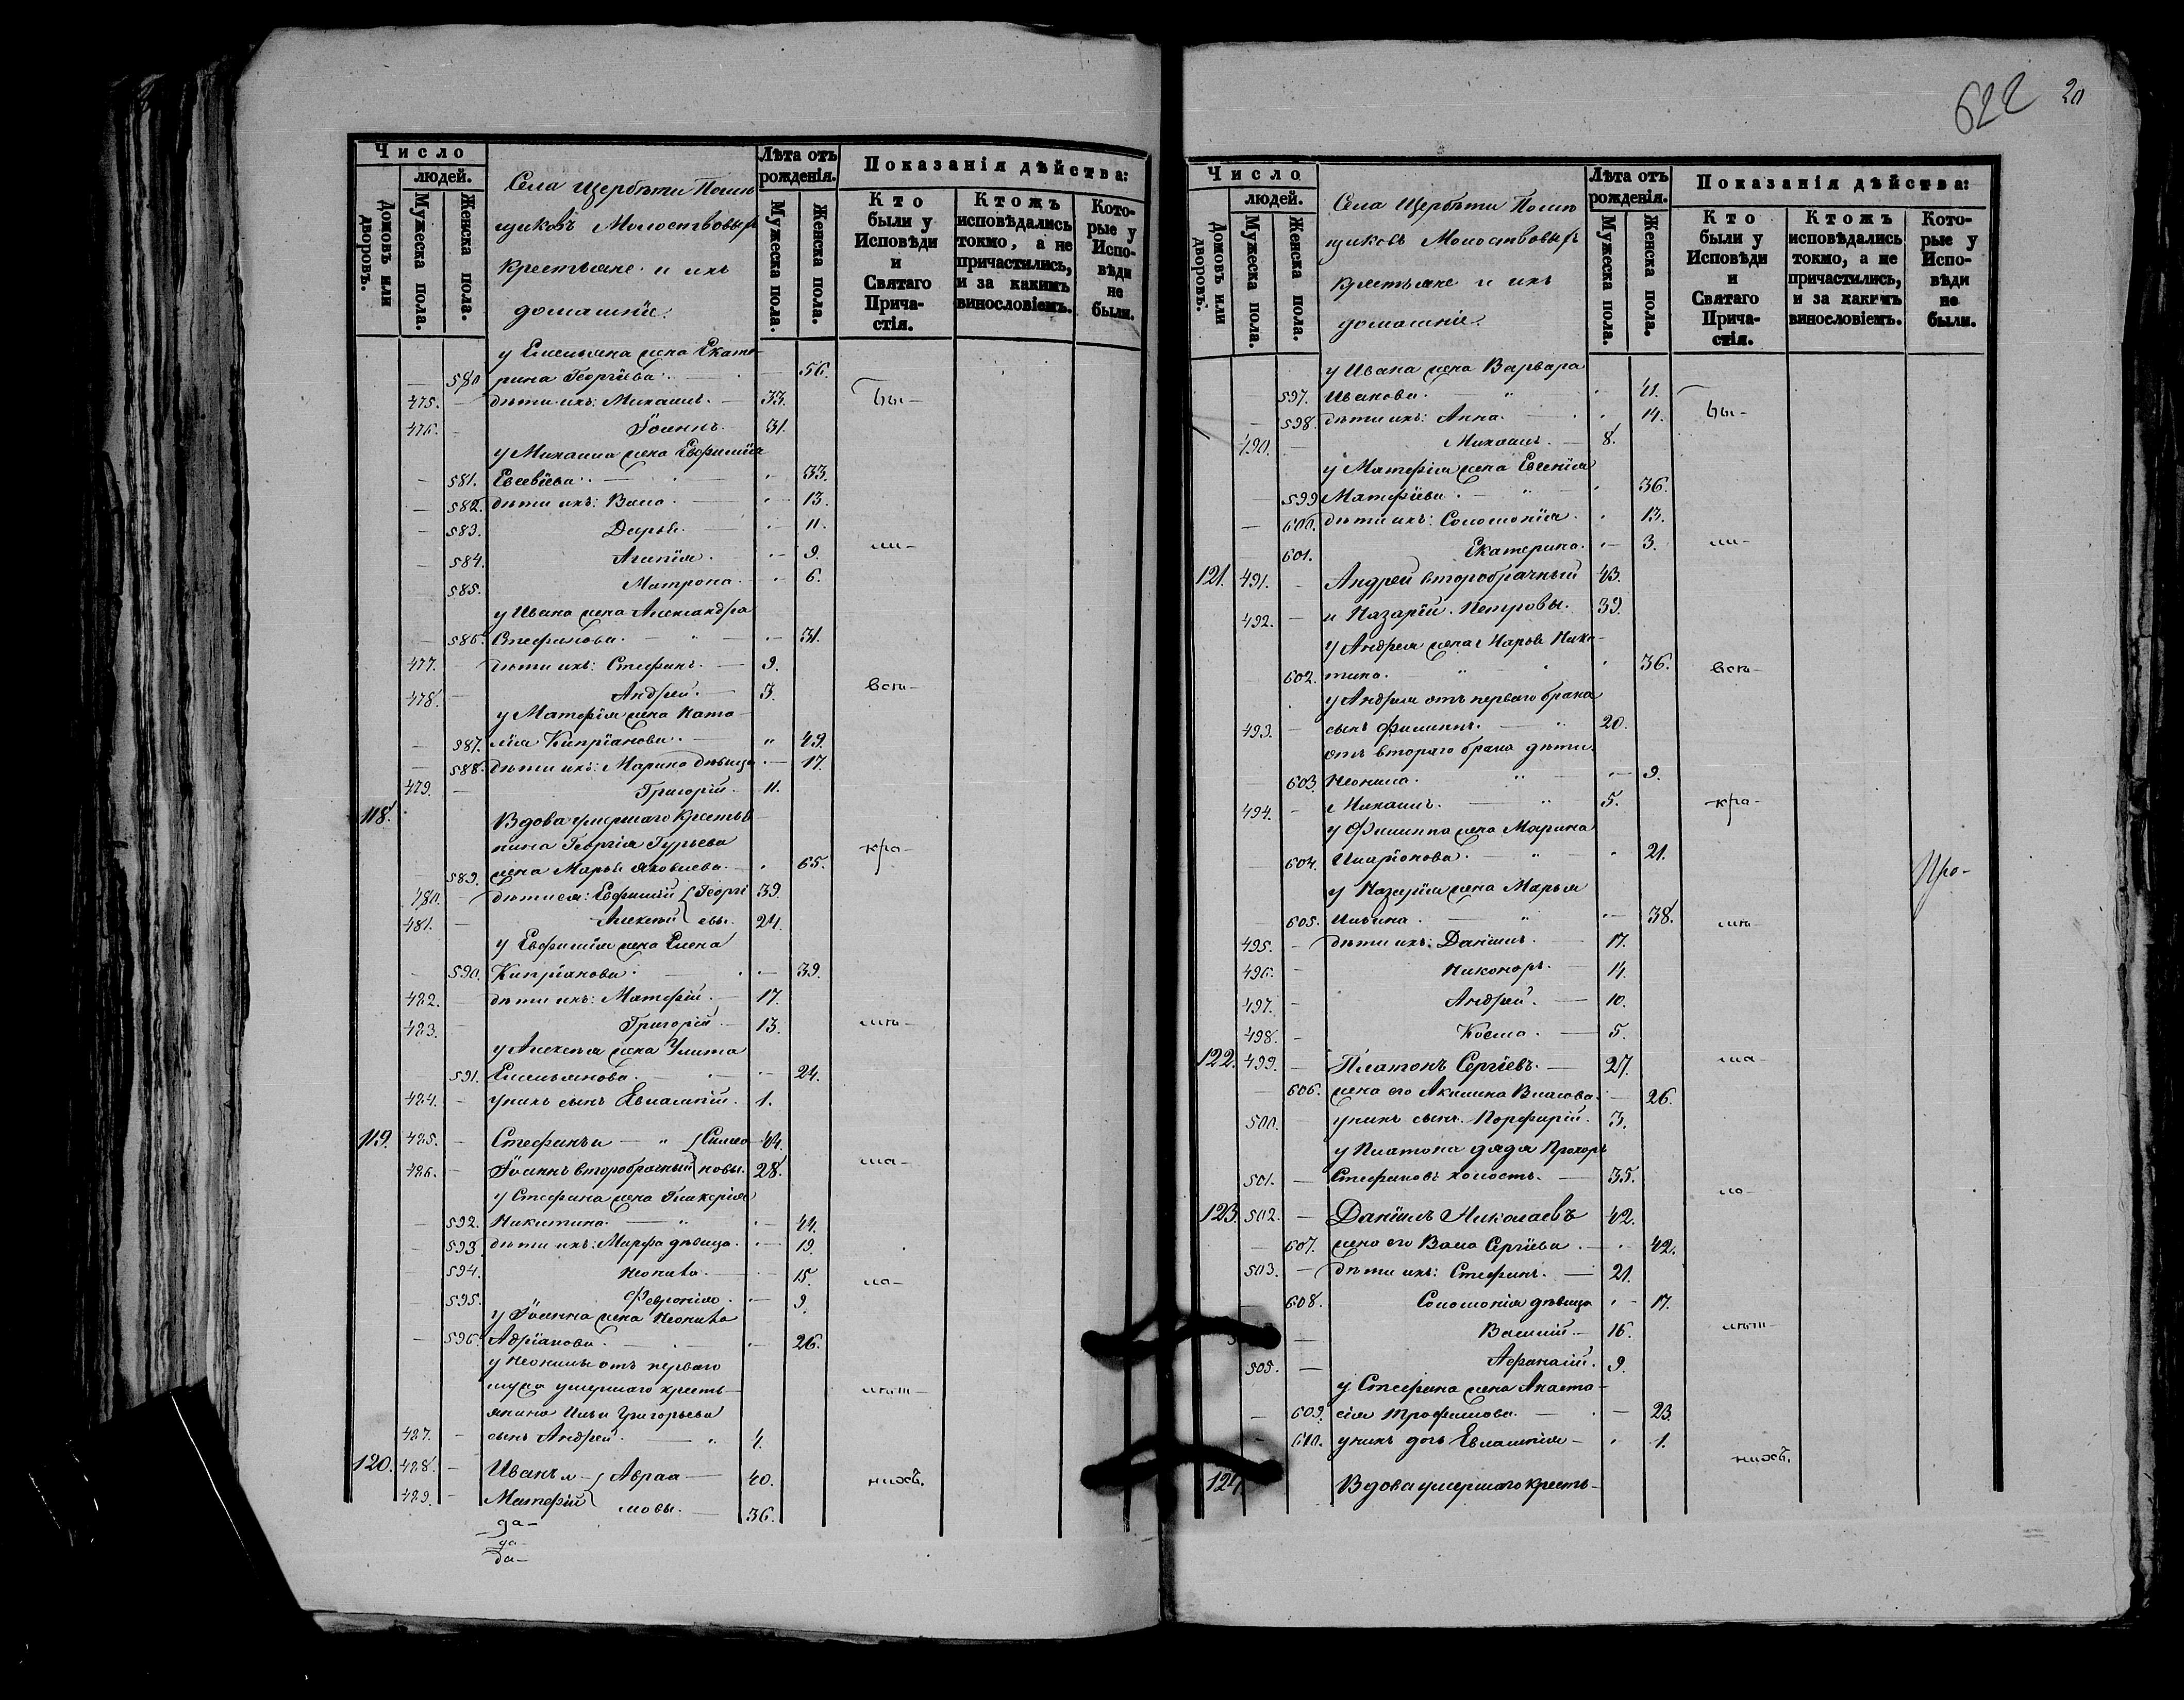 Число
людей.
Домовъ или дворовъ.
Мужеска пола.
Женска пола.
Села Щербѣти Помѣ
щиковъ Молоствовыхъ
крестьяне и ихъ
домашніе.
Лѣта отъ рожденія.
Мужеска пола.
Женска пола.
Показанія дѣйства:
Кто были у Исповѣди и Святаго Причастія.
Ктожъ исповѣдались токмо, а не причастились, и за какимъ винословіемъ.
Которые у Исповѣди не были.
у Емельяна жена Екате-
580 рина Георгіева. 56.
475. дѣти ихъ: Михаилъ. 33. Бы-
476. Іоаннъ. 31.
у Михаила жена Евфимія
581. Евсевіева. 33.
582. дѣти ихъ: Васса 13.
583. Дарья. 11.
584. Агапія. 9. ли-
585. Матрона. 6.
у Ивана жена Александра
586. Стефанова. 31.
477. дѣти ихъ: Стефанъ. 9.
478. Андрей. 3. всѣ-
у Матфія жена Ната-
587. лія Кипріанова. 49.
588. дѣти ихъ: Марина дѣвица 17.
479. Григорій. 11.
118. Вдова умершаго крестья-
нина Георгія Гурьева
589. жена Марья Яковлева. 65. кро-
480. дѣти ея: Евфимій Георгі 39.
481. Алексѣй евы. 24.
у Евфимія жена Елена
590. Кипріанова. 39.
482. дѣти ихъ: Матфій. 17.
483. Григорій. 13. мѣ-
у Алексѣя жена Улита
591. Емельянова. 24.
484. у нихъ сынъ Евлампій. 1.
119. 485. Стефанъ и Симео 44.
486. Іоаннъ второбрачный новы. 28. ма-
у Стефана жена Гликерія
592. Никитина. 44.
593. дѣти ихъ: Марфа дѣвица. 19.
594. Неонила. 15. ло-
595. Февронія. 9.
у Іоанна жена Неонила
596. Адріанова. 26.
у Неонилы отъ перваго
мужа умершаго кресть-
янина Ильи Григорьева лѣт-
487. сынъ Андрей. 4.
120. 488. Иванъ и Авраа- 40. нихъ.
489. Матфій мовы. 36.
да-
да-
да-
622 20
Число
людей.
Домовъ или дворовъ.
Мужеска пола.
Женска пола.
Села Щербѣти Помѣ
щиковъ Молоствовыхъ
крестьяне и ихъ
домашніе.
Лѣта отъ рожденія.
Мужеска пола.
Женска пола.
Показанія дѣйства:
Кто были у Исповѣди и Святаго Причастія.
Ктожъ исповѣдались токмо, а не причастились, и за какимъ винословіемъ.
Которые у Исповѣди не были.
у Ивана жена Варвара
597. Иванова. 41.
598. дѣти ихъ: Анна. 14. Бы-
490. Михаилъ. 8.
у Матфія жена Евгенія
599 Матфіева. 36.
600. дѣти ихъ: Соломонія. 13.
601. Екатерина. 3. ли-
121. 491. Андрей второбрачный 43.
492. и Назарій Петровы. 39.
у Андрея жена Марья Ники-
602. тина. 36. всѣ-
у Андрея отъ перваго брака
493. сынъ Филиппъ. 20.
отъ втораго брака дѣти.
603. Неонила. 9.
494. Михаилъ. 5. кро-
у Филиппа жена Марина
604. Иларіонова. 21. Про-
у Назарія жена Марья
605. Ильина. 38. мѣ-
495. дѣти ихъ: Даніилъ. 17.
496. Никоноръ. 14.
497. Андрей. 10.
498. Косма. 5.
122. 499. Платонъ Сергіевъ. 27. ма-
606. жена его Акилина Власова. 26.
500. у нихъ сынъ Порфирій. 3.
у Платона дядя Прохоръ
501. Стефановъ холостъ. 35. ло-
123. 502. Даніилъ Николаевъ 42.
607. жена его Васса Сергіева. 42.
503. дѣти ихъ: Стефанъ. 21.
608. Соломонія дѣвица 17.
Василій. 16. лѣт-
505. Афанасій. 9.
у Стефана жена Анаста-
609. сія Трофимова. 23.
610. у нихъ дочь Евлампія 1. нихъ.
124. Вдова умершаго кресть-